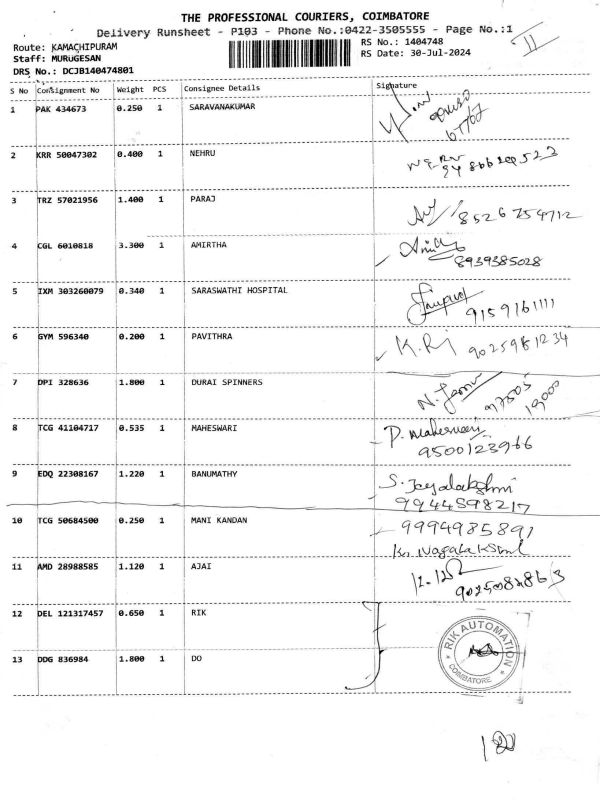 THE PROFESSIONAL COURIERS, COIMBATORE
Delivery Runsheet - P103 - Phone No.:0422-3505555 - Page No.:1
Route: KAMACHIPURAM
Staff: MURUGESAN
DRS No.: DCJB140474801
RS No.: 1404748
RS Date: 30-Jul-2024
11
S No Consignment No Weight PCS Consignee Details Signature
1 PAK 434673 0.250 1 SARAVANAKUMAR
2 KRR 50047302 0.400 1 NEHRU
3 TRZ 57021956 1.400 1 PARAJ 8526754712
4 CGL 6010818 3.300 1 AMIRTHA 8939385028
5 IXM 303260079 0.340 1 SARASWATHI HOSPITAL 9159161111
6 GYM 596340 0.200 1 PAVITHRA K.R 9025981234
7 DPI 328636 1.800 1 DURAI SPINNERS 97505 19000
8 TCG 41104717 0.535 1 MAHESWARI P. Maheswari
9500123966
9 EDQ 22308167 1.220 1 BANUMATHY S. Jayalakshmi
9944598217
10 TCG 50684500 0.250 1 MANI KANDAN 9994985891
K. Nagalakshmi
11 AMD 28988585 1.120 1 AJAI
12 DEL 121317457 0.650 1 RIK
RIK AUTOMATION
COIMBATORE
13 DDG 836984 1.800 1 DO